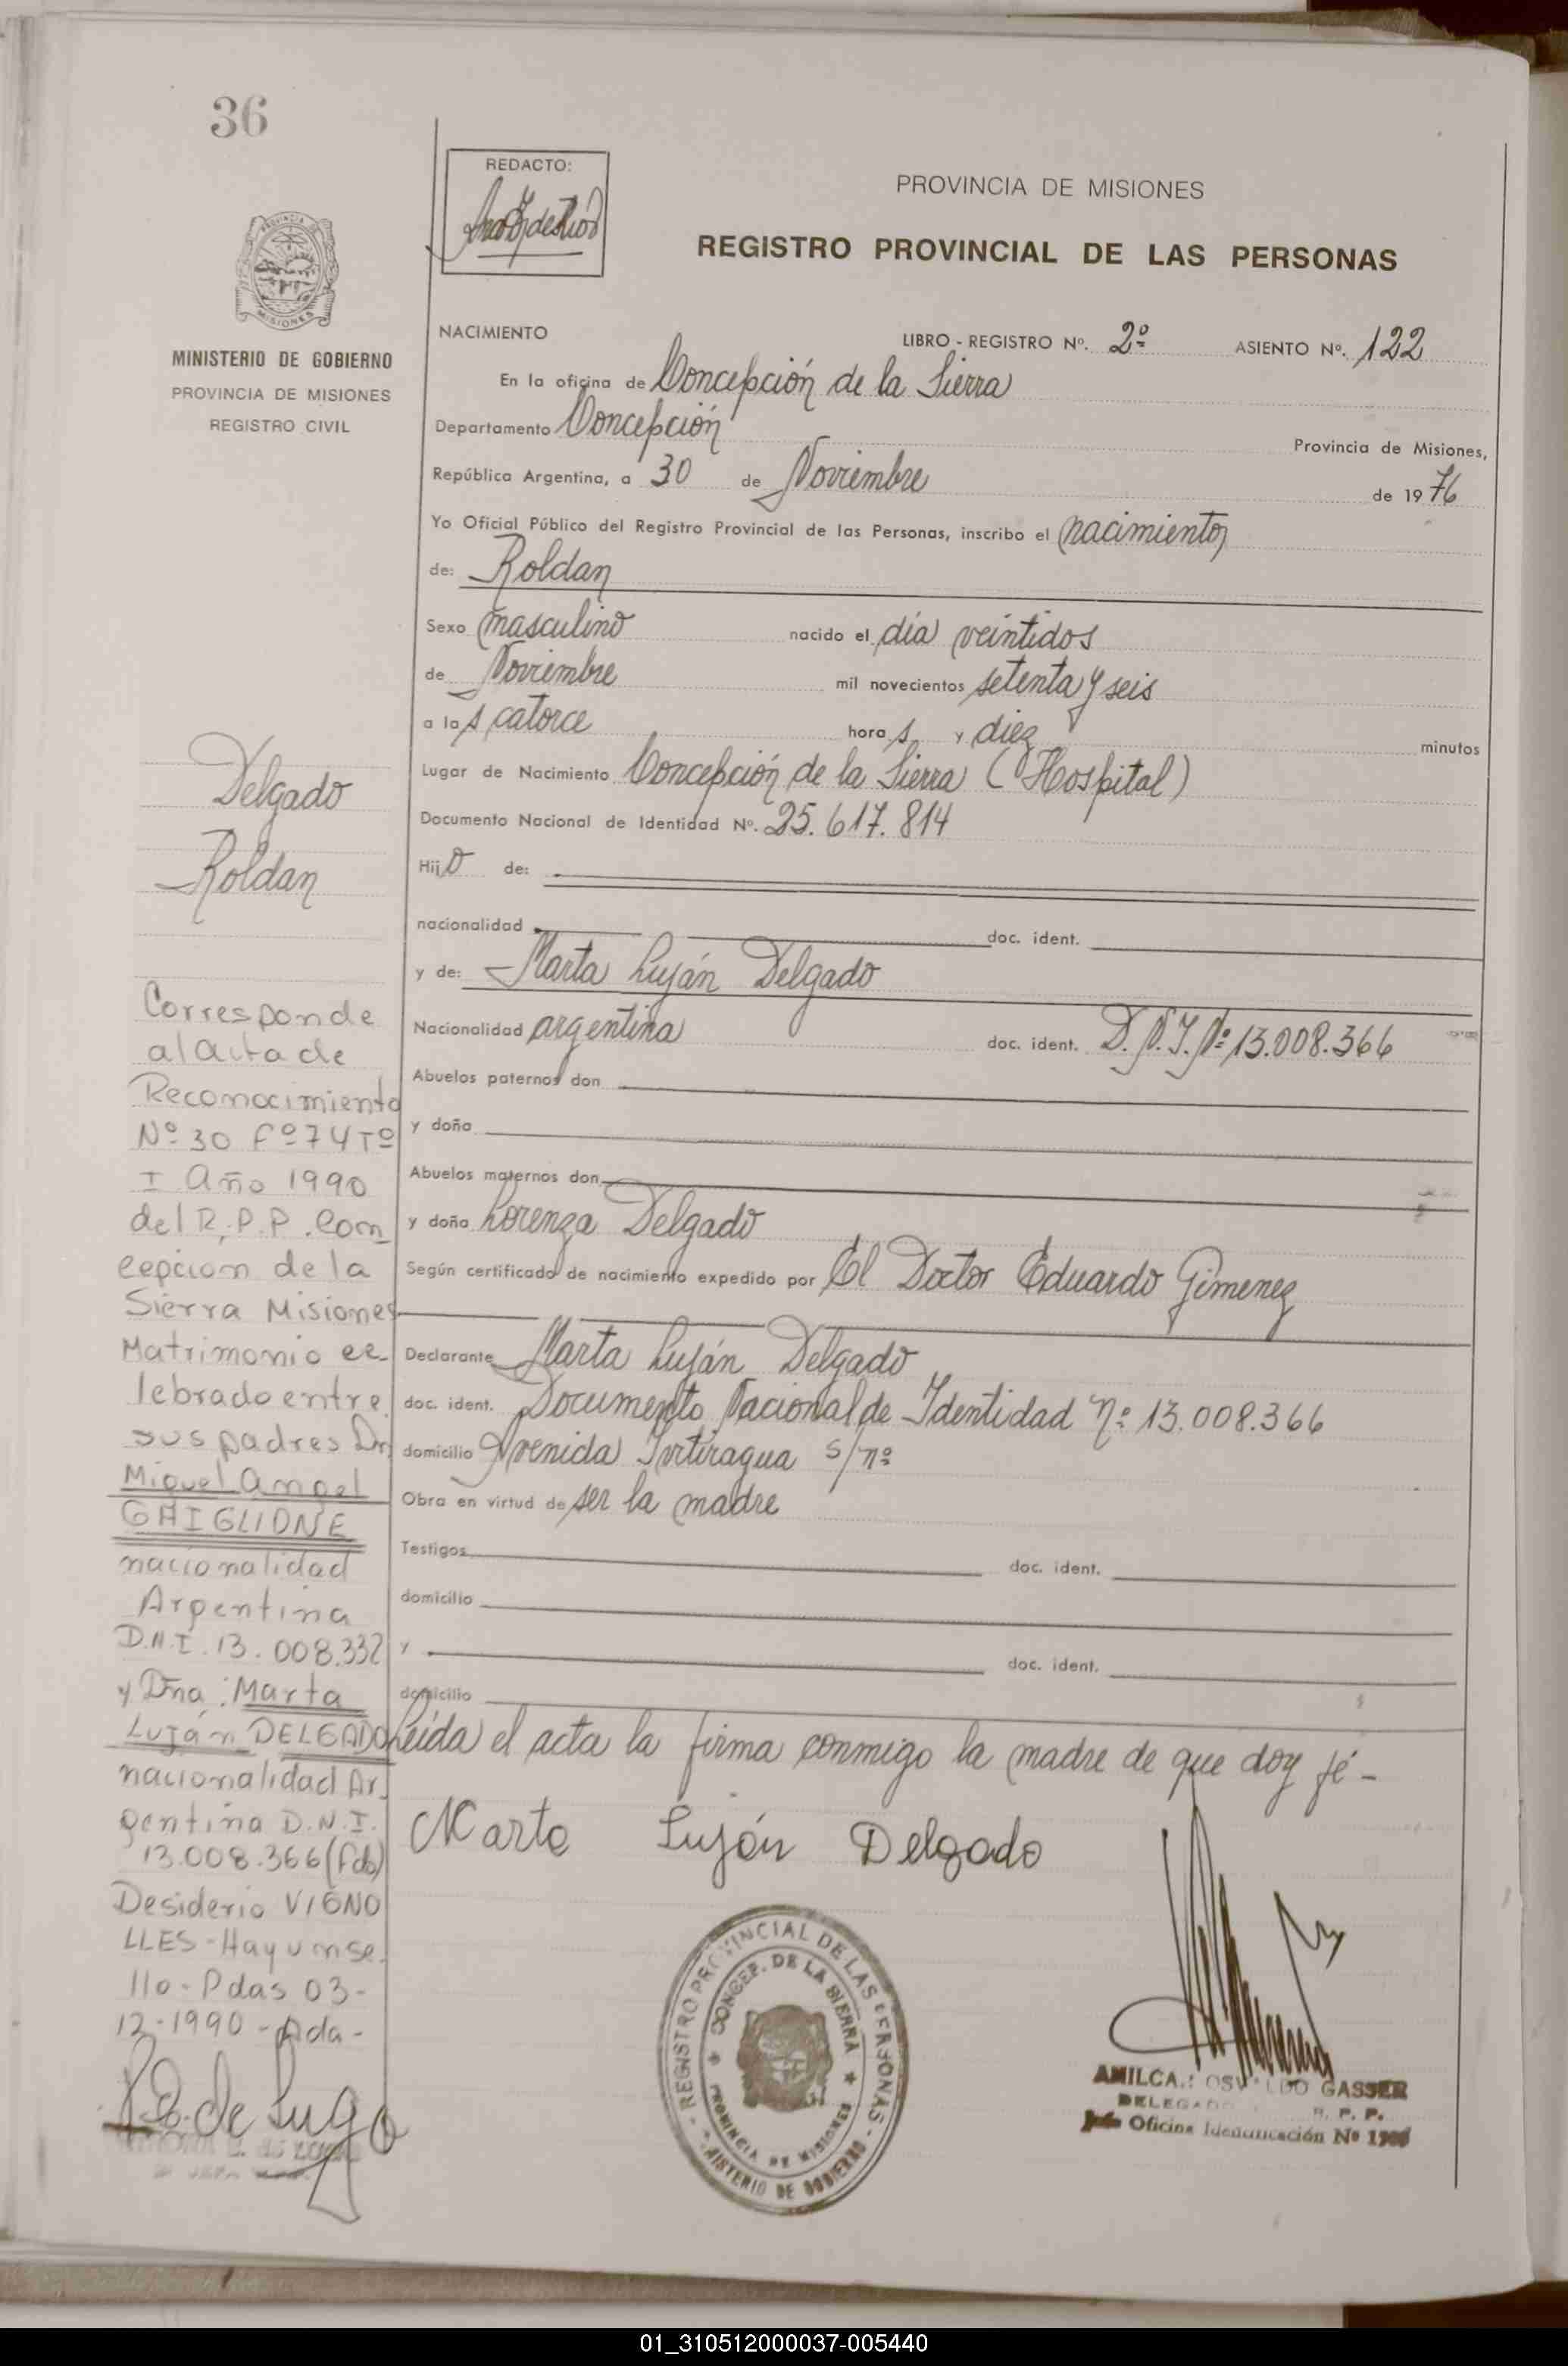 36
REDACTO:
PROVINCIA DE MISIONES
REGISTRO PROVINCIAL DE LAS PERSONAS
MISIONES
MINISTERIO DE GOBIERNO
PROVINCIA DE MISIONES
REGISTRO CIVIL
NACIMIENTO LIBRO - REGISTRO Nº. 2º ASIENTO Nº. 122
En la oficina de Concepción de la Sierra
Departamento Concepción Provincia de Misiones,
República Argentina, a 30 de Noviembre de 1976
Yo Oficial Público del Registro Provincial de las Personas, inscribo el nacimiento
de: Roldan
Sexo masculino nacido el día veintidos
de Noviembre mil novecientos setenta y seis
a las catorce horas y diez minutos
Lugar de Nacimiento Concepción de la Sierra (Hospital)
Documento Nacional de Identidad Nº. 25.617.814
Hijo de:
nacionalidad doc. ident.
y de: Marta Luján Delgado
Nacionalidad argentina doc. ident. D.N.I. Nº 13.008.366
Abuelos paternos don
y doña
Abuelos maternos don
y doña Lorenza Delgado
Según certificado de nacimiento expedido por El Doctor Eduardo Gimenez
Declarante Marta Luján Delgado
doc. ident. Documento Nacional de Identidad Nº 13.008.366
domicilio Avenida s/nº
Obra en virtud de ser la madre
Testigos doc. ident.
domicilio
y doc. ident.
domicilio
Leída el acta la firma conmigo la madre de que doy fé-
Marta Luján Delgado
Delgado
Roldan
Corresponde
al Acta de
Reconocimiento
Nº 30 Fº 74 Tº
I Año 1990
del R.P.P. Con
cepción de la
Sierra Misiones
Matrimonio ce
lebrado entre
sus padres Dn
Miguel Angel
GAIGLIONE
nacionalidad
Argentina
D.N.I. 13.008.332
y Dña: Marta
Luján DELGADO
nacionalidad Ar
gentina D.N.I.
13.008.366 (fdo)
Desiderio VIGNO
LLES-Hay un se
llo-Pdas 03-
12-1990-
de Lugo
REGISTRO PROVINCIAL DE LAS PERSONAS
CONCEP. DE LA SIERRA
PROVINCIA DE MISIONES
MINISTERIO DE GOBIERNO
AMILCAR OSVALDO GASSER
DELEGADO R. P. P.
Oficina Identificación Nº
01_310512000037-005440